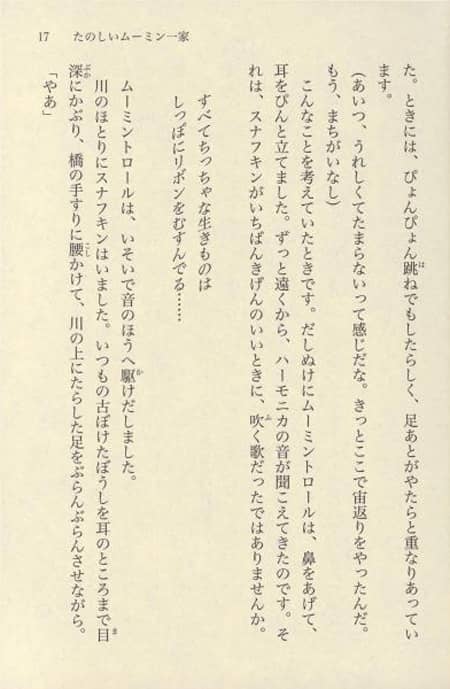 17　たのしいムーミン一家
た。ときには、ぴょんぴょん跳ねでもしたらしく、足あとがやたらと重なりあってい
ます。
（あいつ、うれしくてたまらないって感じだな。きっとここで宙返りをやったんだ。
もう、まちがいなし）
こんなことを考えていたときです。だしぬけにムーミントロールは、鼻をあげて、
耳をぴんと立てました。ずっと遠くから、ハーモニカの音が聞こえてきたのです。そ
れは、スナフキンがいちばんきげんのいいときに、吹く歌だったではありませんか。
すべてちっちゃな生きものは
しっぽにリボンをむすんでる……
ムーミントロールは、いそいで音のほうへ駆けだしました。
川のほとりにスナフキンはいました。いつもの古ぼけたぼうしを耳のところまで目
深にかぶり、橋の手すりに腰かけて、川の上にたらした足をぶらんぶらんさせながら。
「やあ」